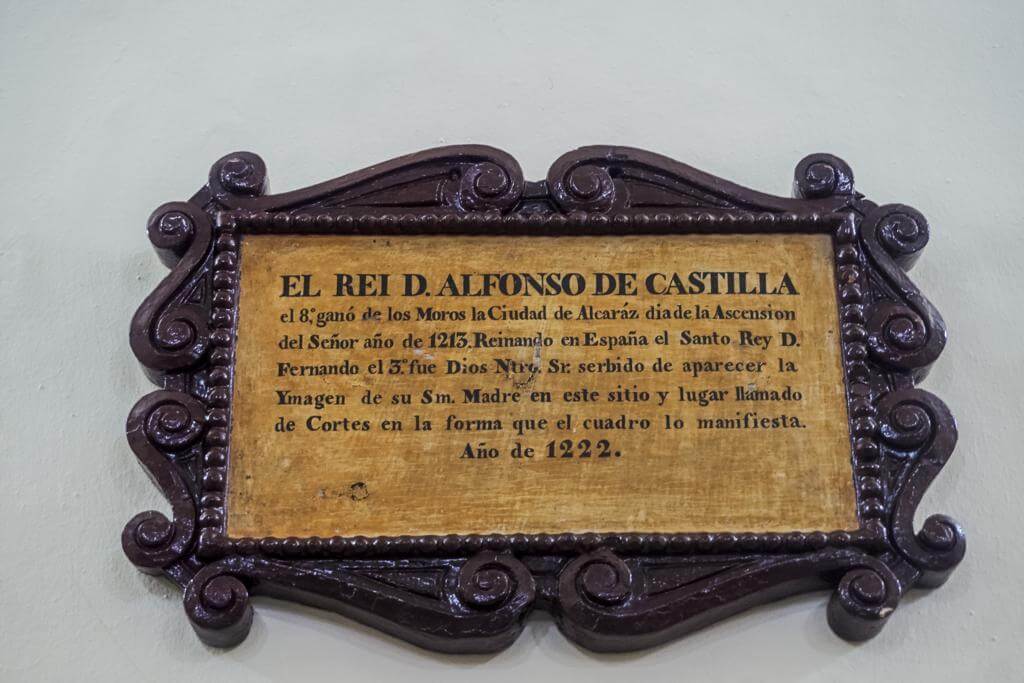 EL REI D. ALFONSO DE CASTILLA
el 8.º ganó de los Moros la Ciudad de Alcaráz dia de la Ascension
del Señor año de 1213. Reinando en España el Santo Rey D.
Fernando el 3.º fue Dios Ntro. Sr. serbido de aparecer la
Ymagen de su Sm. Madre en este sitio y lugar llamado
de Cortes en la forma que el cuadro lo manifiesta.
Año de 1222.